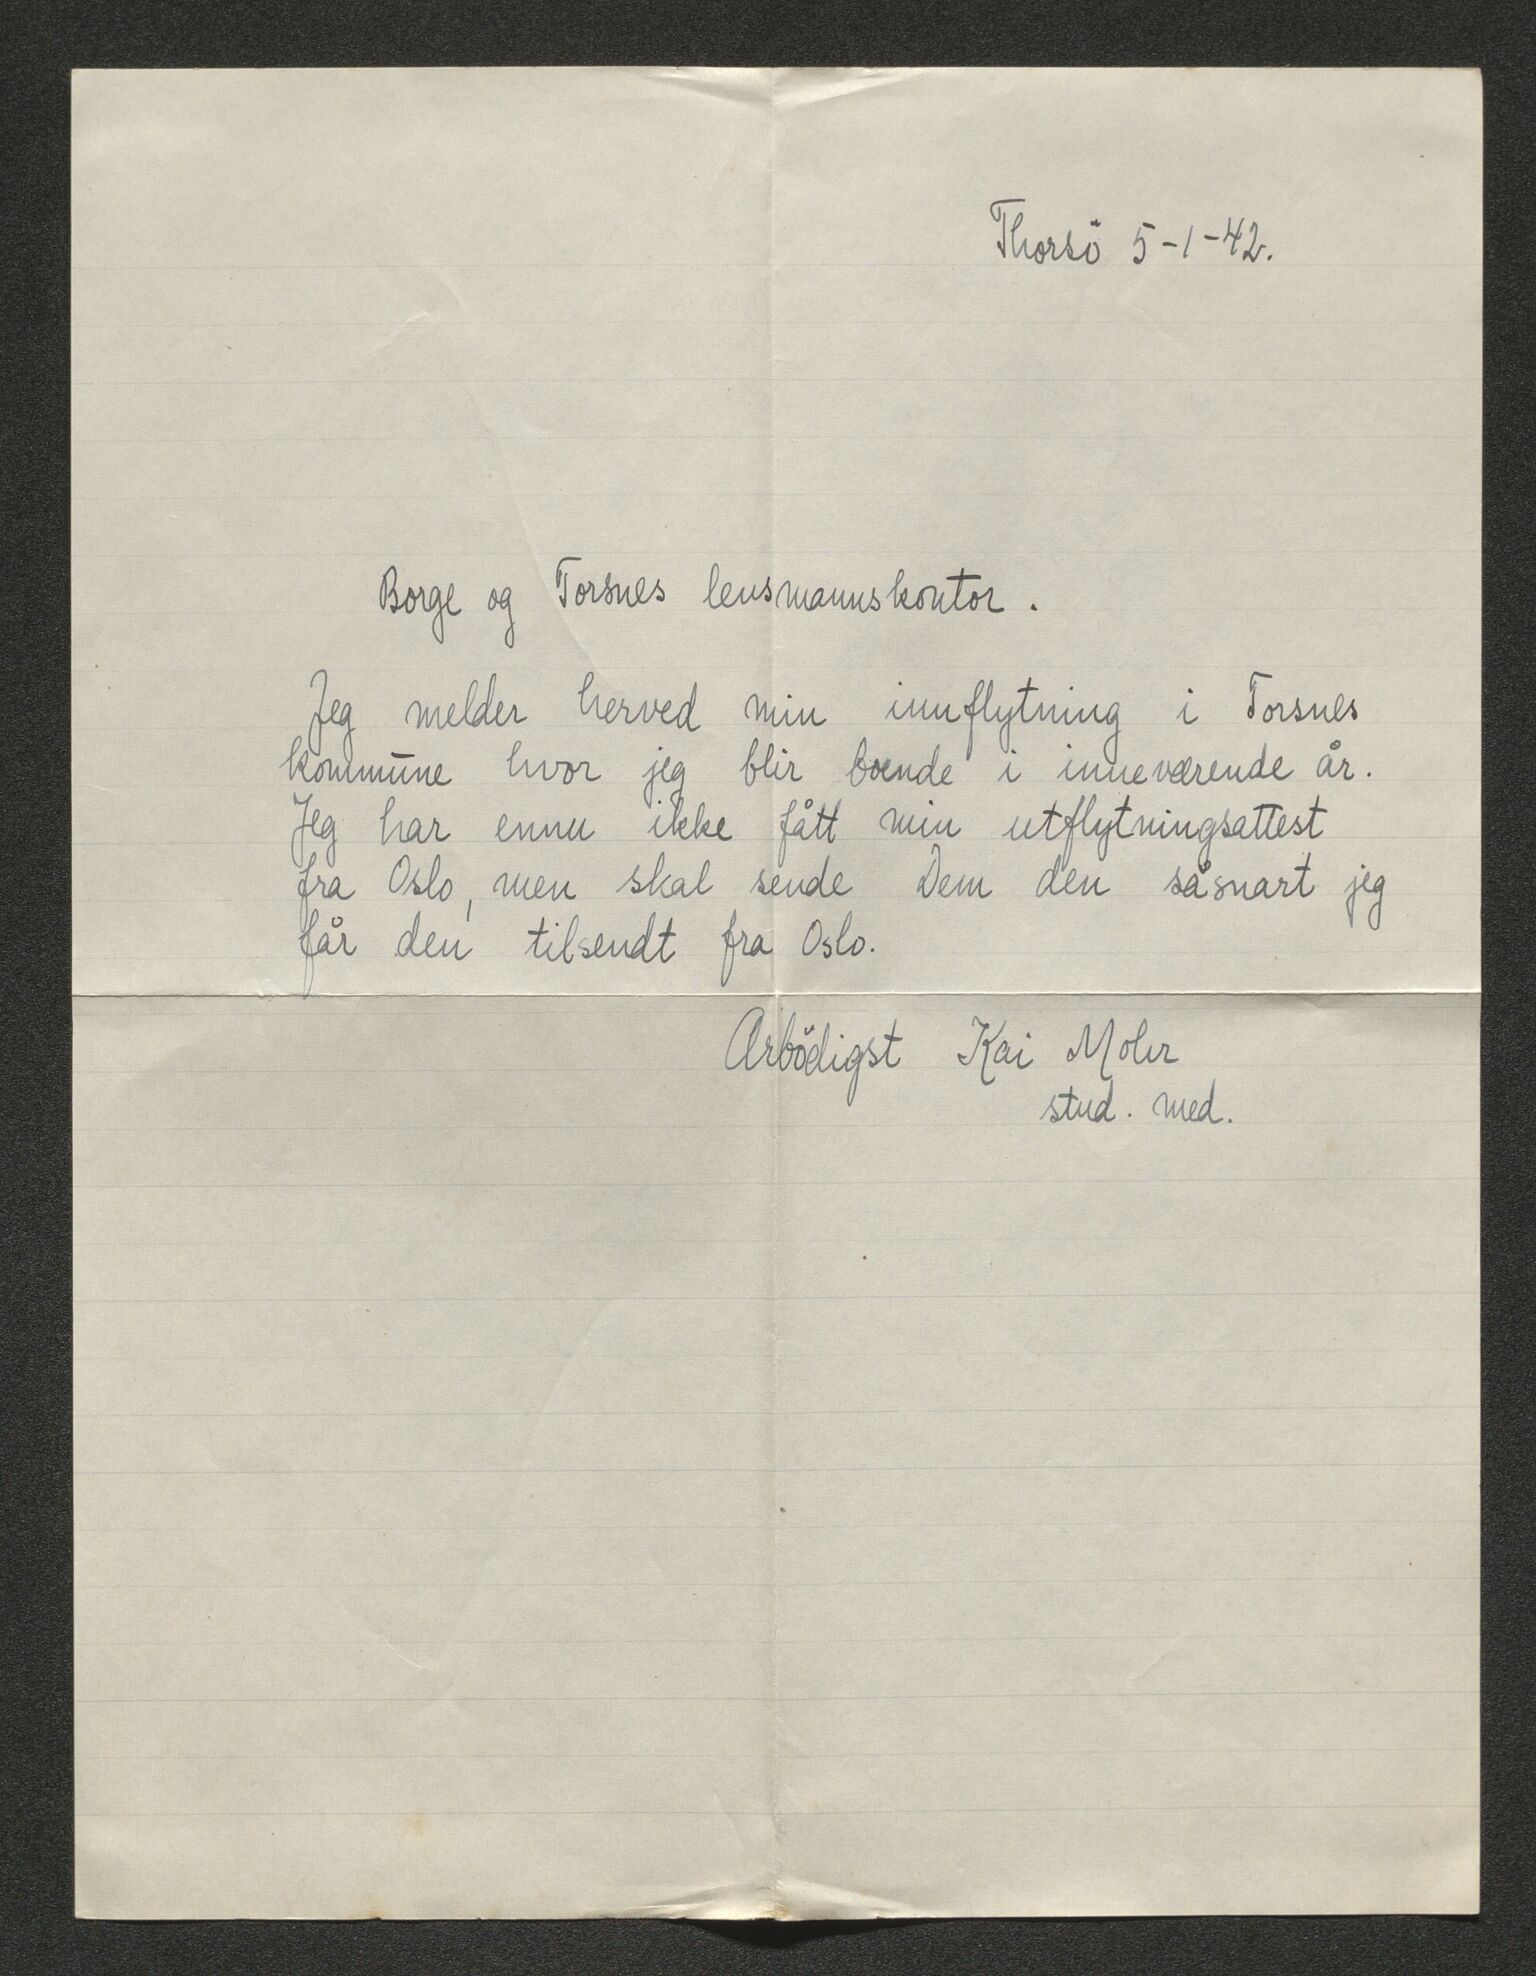 Thorsö 5-1-42.
Borge og Torsnes lensmannskontor.
Jeg melder herved min innflytning i Torsnes
kommune hvor jeg blir boende i inneværende år.
Jeg har ennu ikke fått min utflytningsattest
fra Oslo, men skal sende Dem den såsnart jeg
får den tilsendt fra Oslo.
Arbödigst Kai Mohr
stud. med.